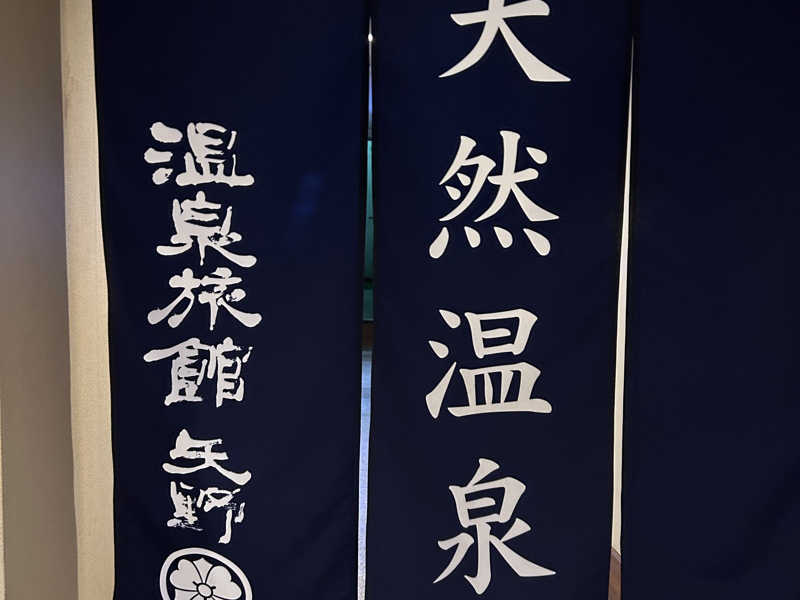 天然温泉
温泉旅館 矢野